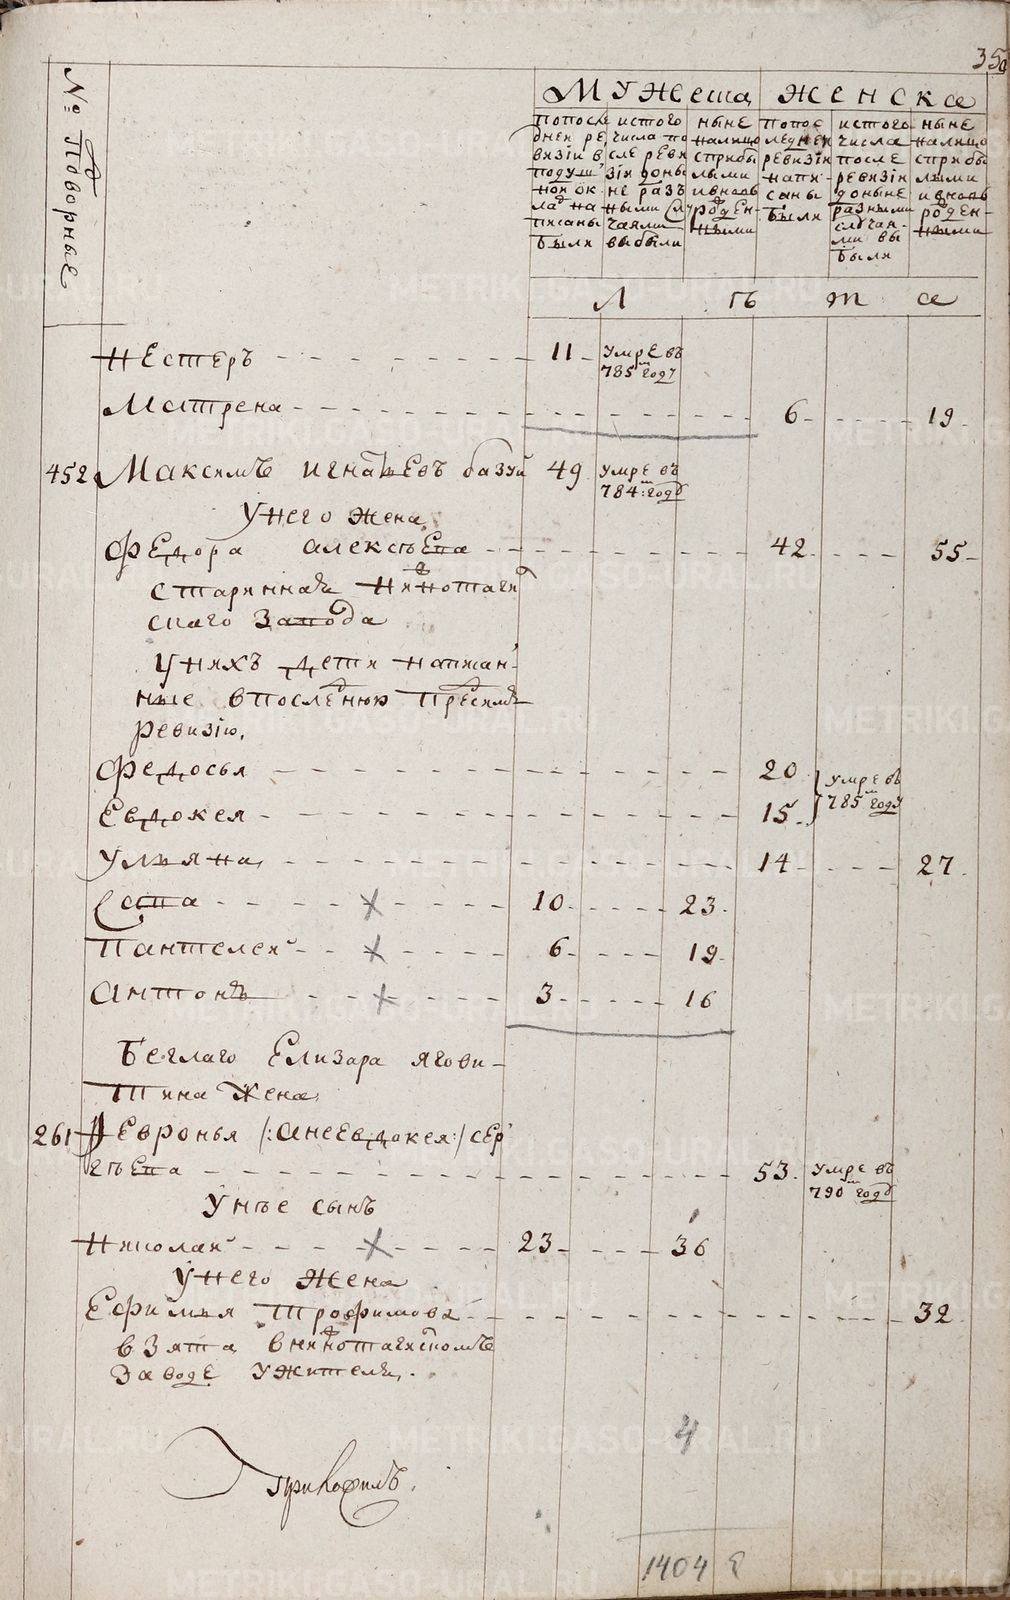 350
№ Подворные
Мужеска женска
попосле дней ревизіи в подушной оклад написаны были
истого числа после ревизіи доныне разными случаями выбыли
ныне налицо сприбылыми ивновь рожденными
попоследней ревизіи написаны были
истого числа после ревизіи доныне разными случаями выбыли
ныне налицо сприбылыми ивновь рожденными
Л ѣ т а
нестеръ 11 умре въ
785 м году
Матрена 6 19
452 Максимъ игнатьевъ базуй 49 умре въ
784 м годѣ
унего жена
федора алексѣева 42 55
стариннаҍ нижнотаги
скаго завода
унихъ дети написан
ные впоследнюю пресимъ
ревизію.
федосья 20 умре въ
785 м году
Евдокея 15
ульяна 14 27
Сава 10 23
пантелей 6 19
антонъ 3 16
беглаго Елизара ягови-
тина жена
261 Февронья /:анеевдокея:/ сер
гѣева 53 умре въ
790 м годѣ
унѣе сынъ
николай 23 36
унего жена
Ефимья трофимова 32
взята внижнотагилскомъ
заводе ужителя.
4
1404